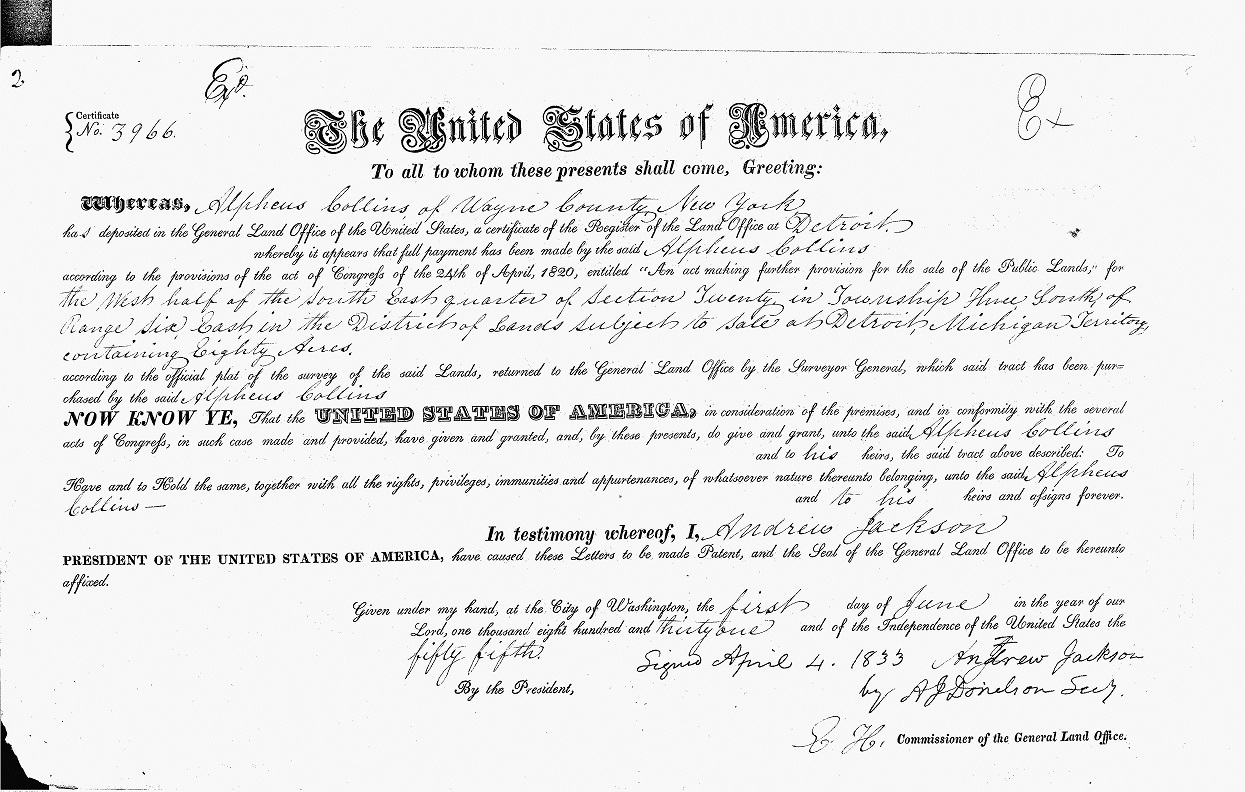 2
Exd.
Ex
Certificate
No. 3966.
The United States of America,
To all to whom these presents shall come, Greeting:
Whereas, Alpheus Collins of Wayne County New York
has deposited in the General Land Office of the United States, a certificate of the Register of the Land Office at Detroit
whereby it appears that full payment has been made by the said Alpheus Collins
according to the provisions of the act of Congress of the 24th of April, 1820, entitled "An act making further provision for the sale of the Public Lands," for
the West half of the South East quarter of Section Twenty, in Township Three South, of
Range Six East in the District of Lands subject to sale at Detroit, Michigan Territory,
containing Eighty Acres.
according to the official plat of the survey of the said Lands, returned to the General Land Office by the Surveyor General, which said tract has been pur=
chased by the said Alpheus Collins
NOW KNOW YE, That the UNITED STATES OF AMERICA, in consideration of the premises, and in conformity with the several
acts of Congress, in such case made and provided, have given and granted, and, by these presents, do give and grant, unto the said Alpheus Collins
and to his heirs, the said tract above described: To
Have and to Hold the same, together with all the rights, privileges, immunities and appurtenances, of whatsoever nature thereunto belonging, unto the said Alpheus
Collins — and to his heirs and assigns forever.
In testimony whereof, I, Andrew Jackson
PRESIDENT OF THE UNITED STATES OF AMERICA, have caused these Letters to be made Patent, and the Seal of the General Land Office to be hereunto
affixed.
Given under my hand, at the City of Washington, the first day of June in the year of our
Lord, one thousand eight hundred and thirty one and of the Independence of the United States the
fifty fifth. Signed April 4. 1833 Andrew Jackson
By the President, by A J Donelson Secy.
E. H. Commissioner of the General Land Office.